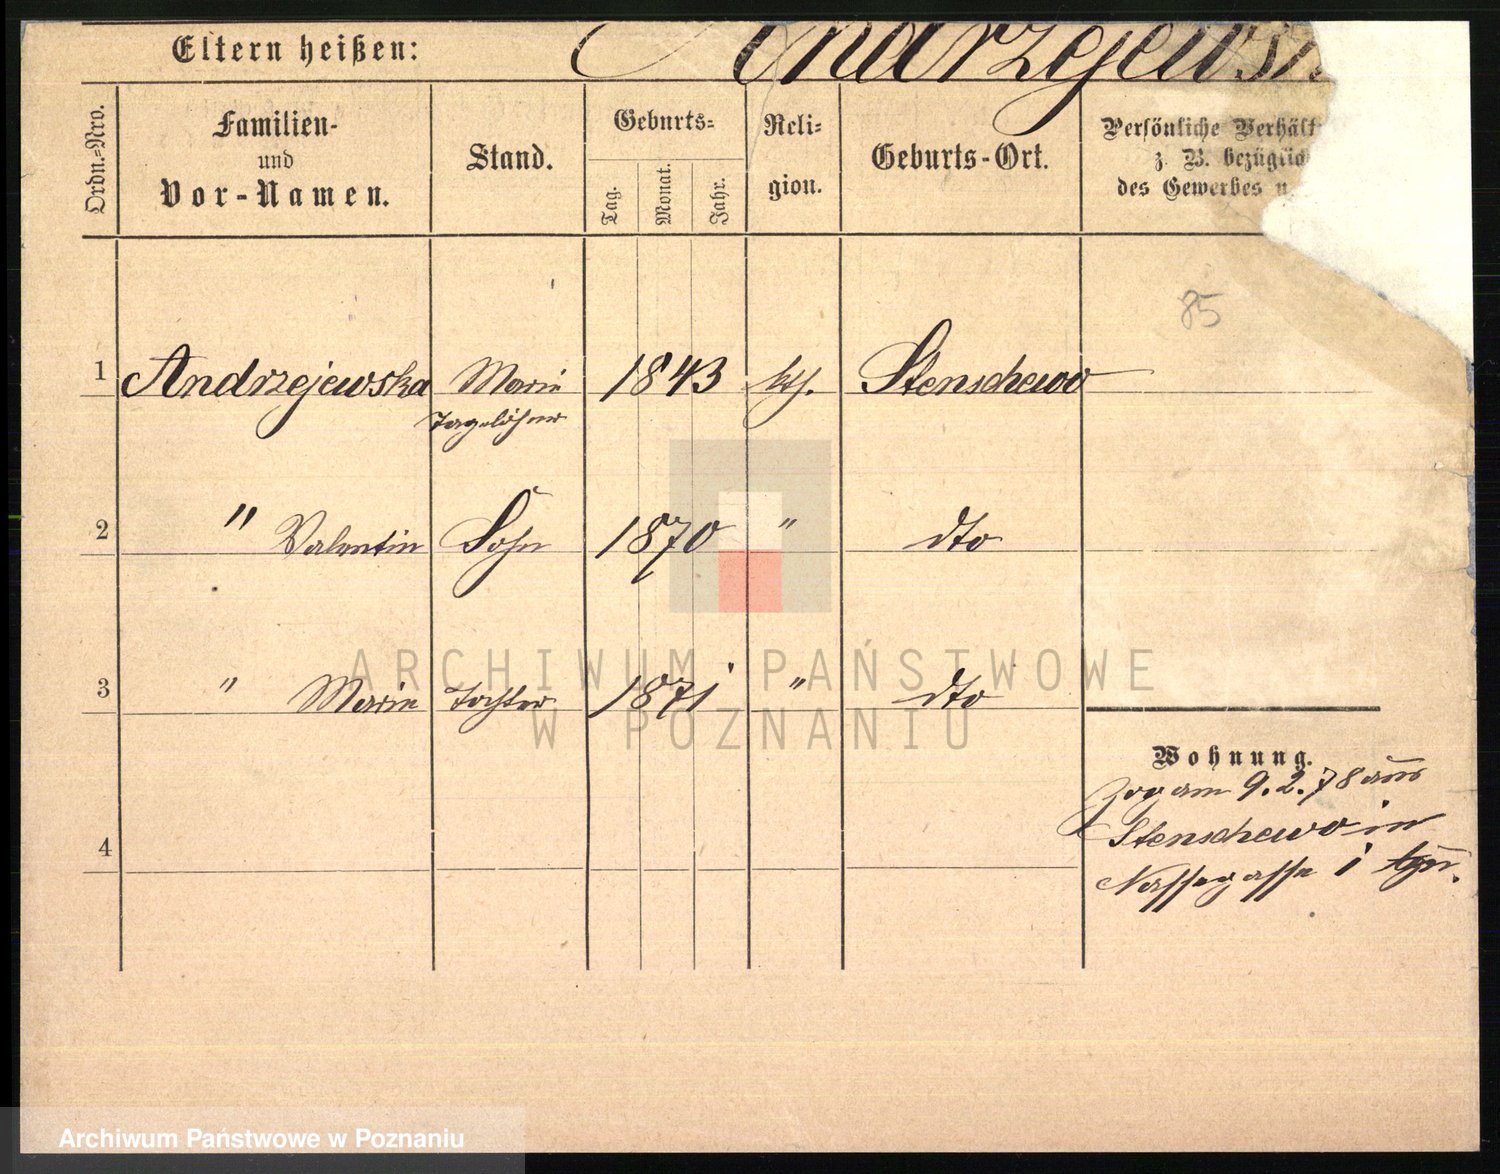 Eltern heißen: Andrzejews
Ordn.=Nro.
Familien-
und
Vor-Namen.
Stand.
Geburts=
Tag.
Monat.
Jahr.
Reli=
gion.
Geburts-Ort.
Persönliche Verhält
z. B. bezüglich
des Gewerbes u.
85
1 Andrzejewska Marie 1843 kth. Stenschewo
Tagelöhner
2 " Valentin Sohn 1870 " dto
3 " Marie Tochter 1871 " dto
4
Wohnung.
Zog am 9.2.78 aus
Stenschewo in
Nassegasse 1
ARCHIWUM PAŃSTWOWE
W POZNANIU
Archiwum Państwowe w Poznaniu